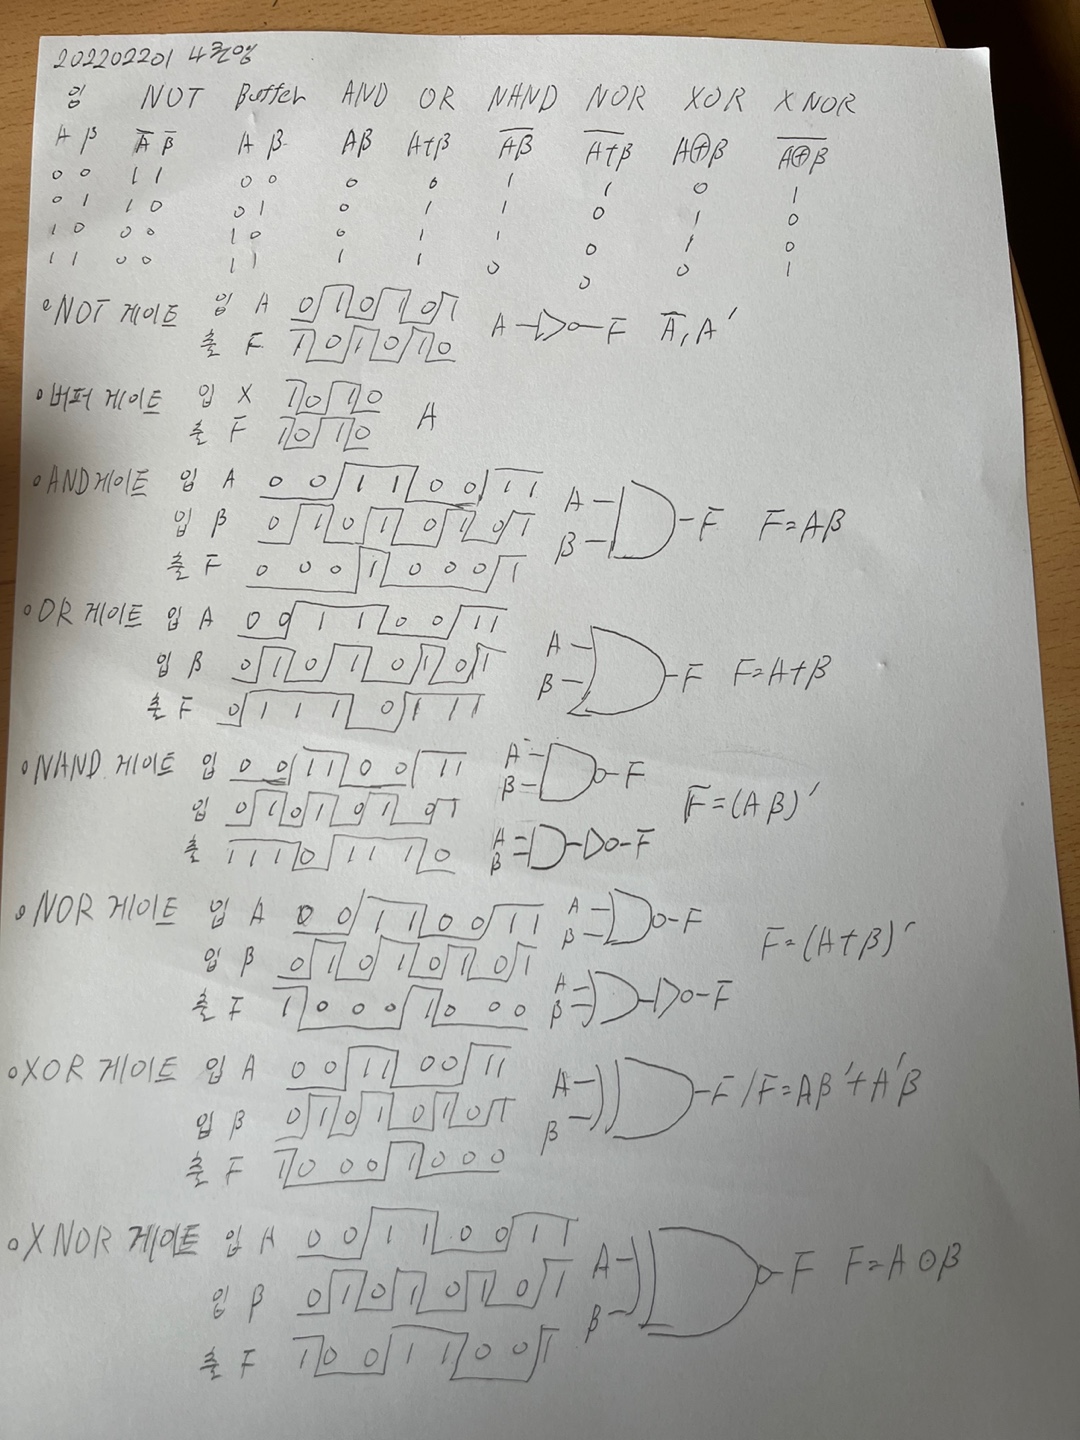 202202201
입 NOT Buffer AND OR NAND NOR XOR XNOR
A B A̅ B̅ A B AB A+B A̅B̅ A̅+̅B̅ A⊕B A̅⊕̅B̅
0 0 1 1 0 0 0 0 1 1 0 1
0 1 1 0 0 1 0 1 1 0 1 0
1 0 0 0 1 0 0 1 1 0 1 0
1 1 0 0 1 1 1 1 0 0 0 1
NOT 게이트 입 A 0 1 0 1 0 1
출 F 1 0 1 0 1 0
A F A̅, A′
버퍼 게이트 입 X 1 0 1 0
출 F 1 0 1 0
A
AND게이트 입 A 0 0 1 1 0 0 1 1
입 B 0 1 0 1 0 1 0 1
출 F 0 0 0 1 0 0 0 1
A B F F=AB
OR 게이트 입 A 0 0 1 1 0 0 1 1
입 B 0 1 0 1 0 1 0 1
출 F 0 1 1 1 0 1 1 1
A B F F=A+B
NAND 게이트 입 0 0 1 1 0 0 1 1
입 0 1 0 1 0 1 0 1
출 1 1 1 0 1 1 1 0
A B F
A B F
F=(AB)′
NOR 게이트 입 A 0 0 1 1 0 0 1 1
입 B 0 1 0 1 0 1 0 1
출 F 1 0 0 0 1 0 0 0
A B F
A B F
F=(A+B)′
XOR 게이트 입 A 0 0 1 1 0 0 1 1
입 B 0 1 0 1 0 1 0 1
출 F 1 0 0 0 1 0 0 0
A B F / F=AB′+A′B
XNOR 게이트 입 A 0 0 1 1 0 0 1 1
입 B 0 1 0 1 0 1 0 1
출 F 1 0 0 1 1 0 0 1
A B F F=A⊙B